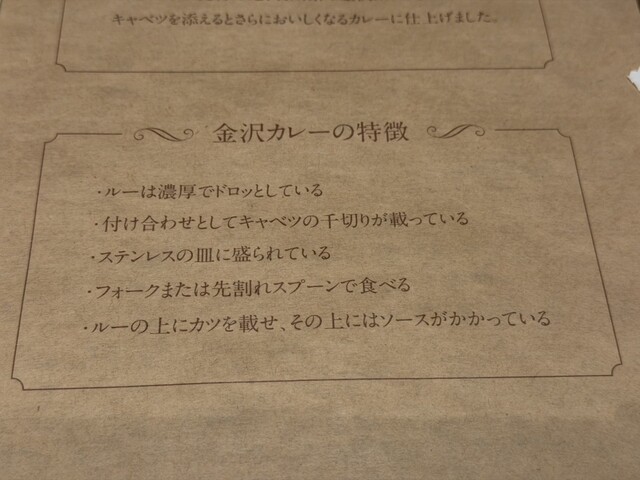 キャベツを添えるとさらにおいしくなるカレーに仕上げました。
金沢カレーの特徴
・ルーは濃厚でドロッとしている
・付け合わせとしてキャベツの千切りが載っている
・ステンレスの皿に盛られている
・フォークまたは先割れスプーンで食べる
・ルーの上にカツを載せ、その上にはソースがかかっている